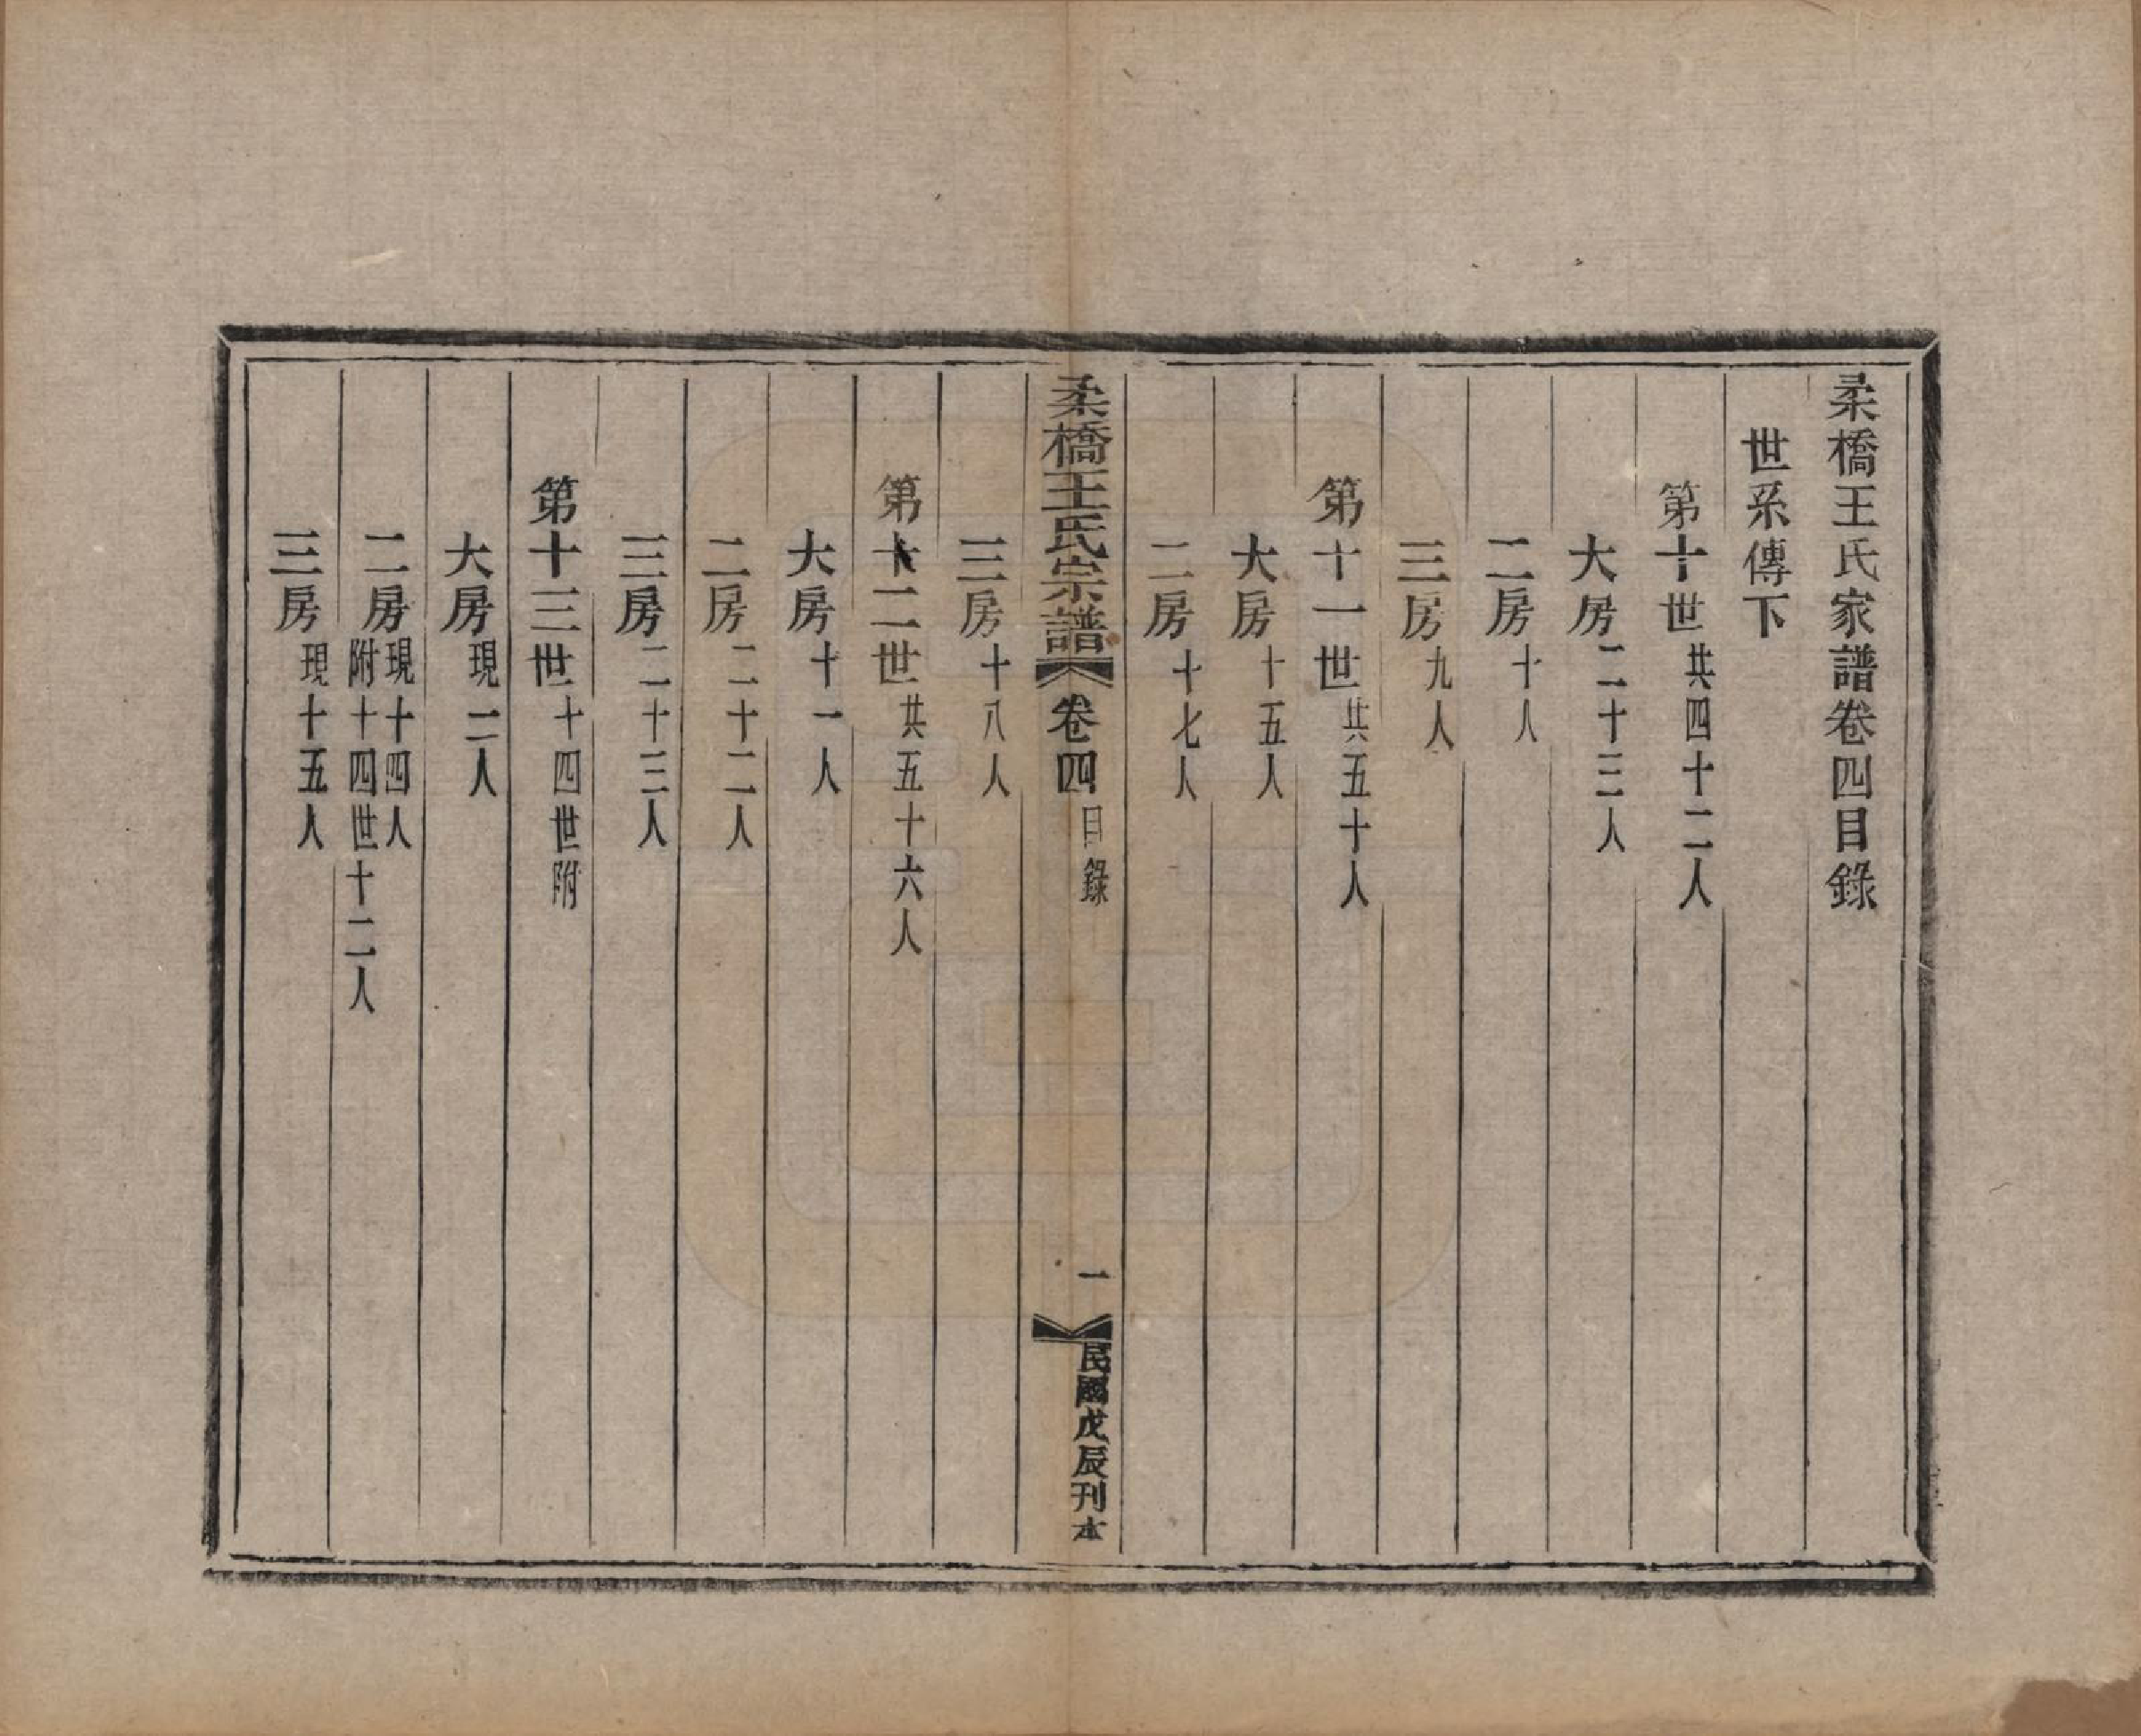 柔橋王氏家譜卷四目錄
世系傳下
第十世共四十二人
大房二十三人
二房十人
三房九人
第十一世共五十人
大房十五人
二房十七人
柔橋王氏宗譜
卷四
目錄
一
民國戊辰刊本
三房十八人
第十二世共五十六人
大房十一人
二房二十二人
三房二十三人
第十三世十四世附
大房現二人
二房現十四人
附十四世十二人
三房現十五人